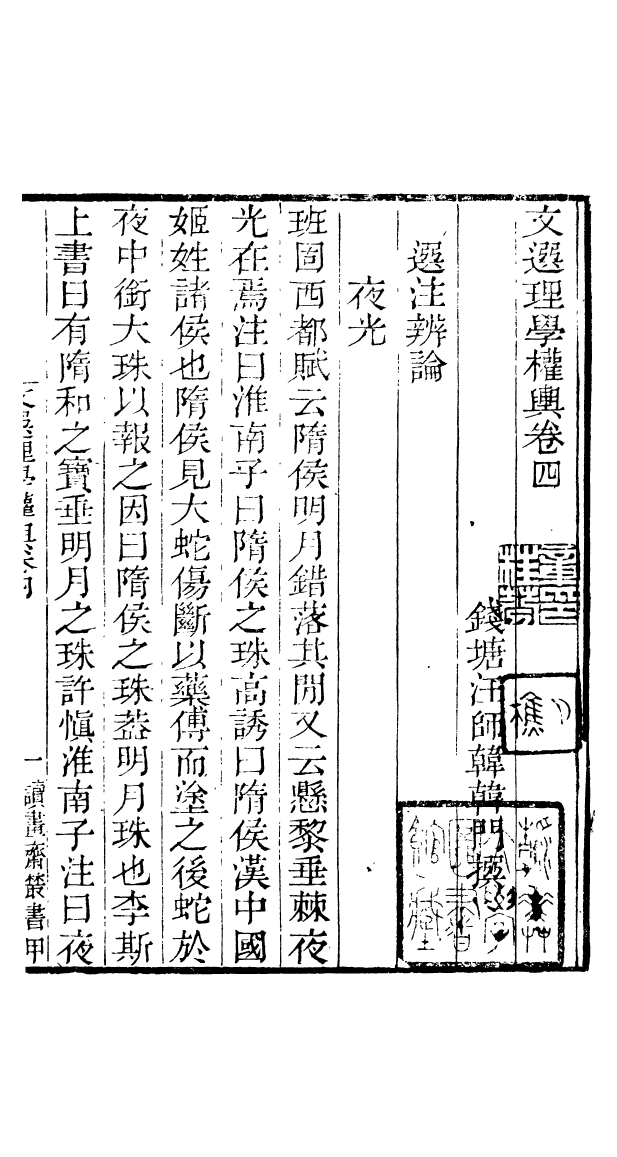 文選理學權輿卷四
錢塘汪師韓韓門撰
選注辨論
夜光
班固西都賦云隋侯明月錯落其閒又云懸黎垂棘夜
光在焉注曰淮南子曰隋侯之珠高誘曰隋侯漢中國
姬姓諸侯也隋侯見大蛇傷斷以藥傅而塗之後蛇於
夜中銜大珠以報之因曰隋侯之珠葢明月珠也李斯
上書曰有隋和之寶垂明月之珠許愼淮南子注曰夜
文選理學權輿卷四
一
讀畫齋叢書甲